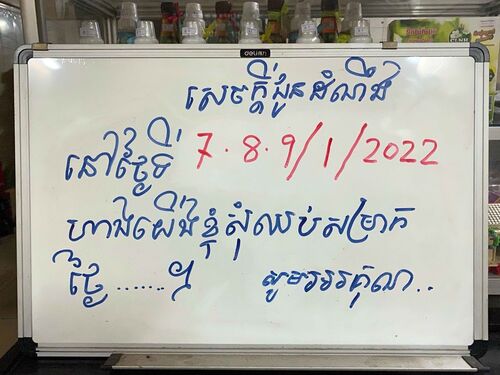 deli
សេចក្តីជូនដំណឹង
នៅថ្ងៃទី 7.8.9/1/2022
ហាងយើងខ្ញុំសុំឈប់សម្រាក
ថ្ងៃ.......ៗ សូមអរគុណ..